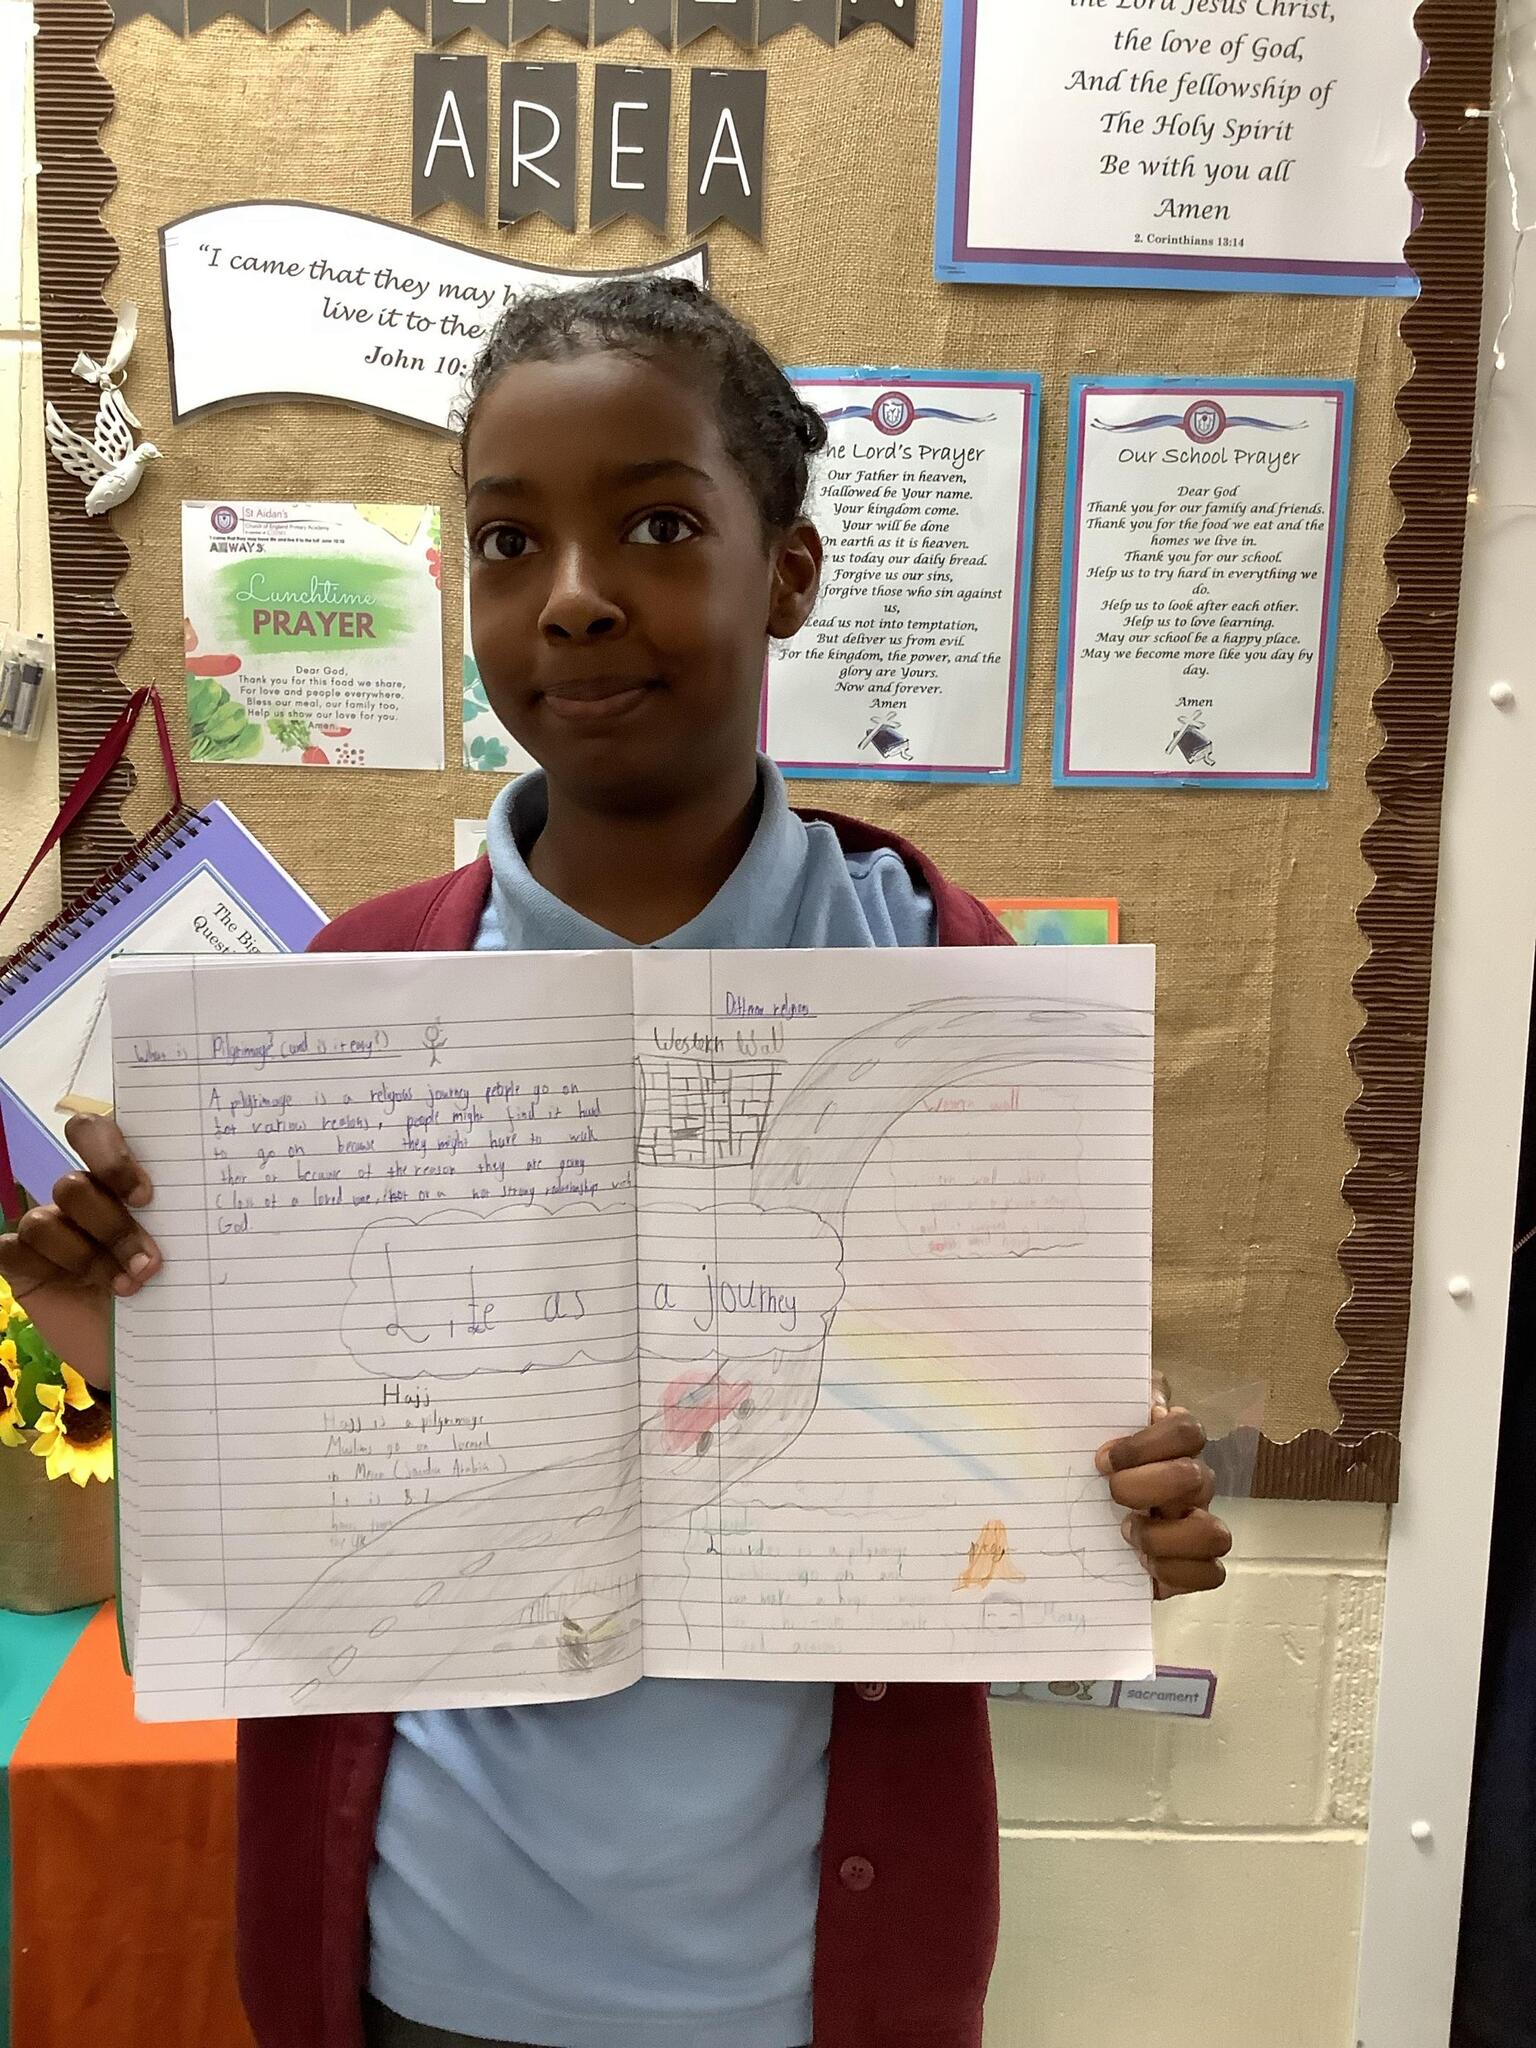 AREA
the Lord Jesus Christ,
the love of God,
And the fellowship of
The Holy Spirit
Be with you all
Amen
2. Corinthians 13:14
"I came that they may h
live it to the
John 10:
St Aidan's
Church of England Primary Academy
"I came that they may have life and live it to the full" John 10:10
ALWAYS
Lunchtime
PRAYER
Dear God,
Thank you for this food we share,
For love and people everywhere.
Bless our meal, our family too,
Help us show our love for you.
Amen.
he Lord's Prayer
Our Father in heaven,
Hallowed be Your name.
Your kingdom come.
Your will be done
On earth as it is heaven.
e us today our daily bread.
Forgive us our sins,
forgive those who sin against
us,
Lead us not into temptation,
But deliver us from evil.
For the kingdom, the power, and the
glory are Yours.
Now and forever.
Amen
Our School Prayer
Dear God
Thank you for our family and friends.
Thank you for the food we eat and the
homes we live in.
Thank you for our school.
Help us to try hard in everything we
do.
Help us to look after each other.
Help us to love learning.
May our school be a happy place.
May we become more like you day by
day.
Amen
The Big
Quest
What is Pilgrimage? (and is it easy?)
A pilgrimage is a religous journey people go on
for various reasons, people might find it hard
to go on because they might have to walk
ther or because of the reason they are going
( loss of a loved one, or a not strong relationship with
God.
Different religions
Western Wall
Life as a journey
Hajj
Hajj is a pilgrimage
Muslims go on
in Mecca (Saudia Arabia)
It is
pray
Money
sacrament